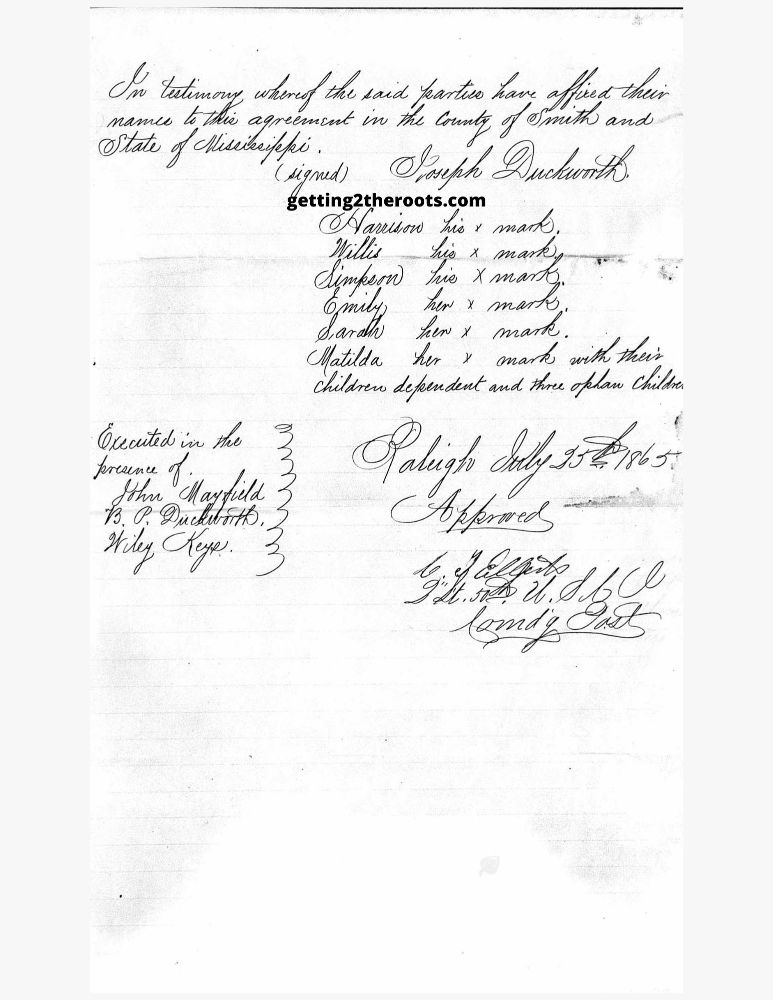 In testimony whereof the said parties have affixed their
names to this agreement in the County of Smith and
State of Mississippi.
(signed) Joseph Duckworth.
getting2theroots.com
Harrison his x mark.
Willis his x mark.
Simpson his X mark.
Emily her x mark.
Sarah her x mark.
Matilda her x mark with their
children dependent and three ophan Childre
Executed in the
presence of.
John Mayfield
B. P. Duckworth.
Wiley Keys.
Raleigh July 25th 1865
Approved
2nd Lt. 50th. U. S. C I
Comd'g Post